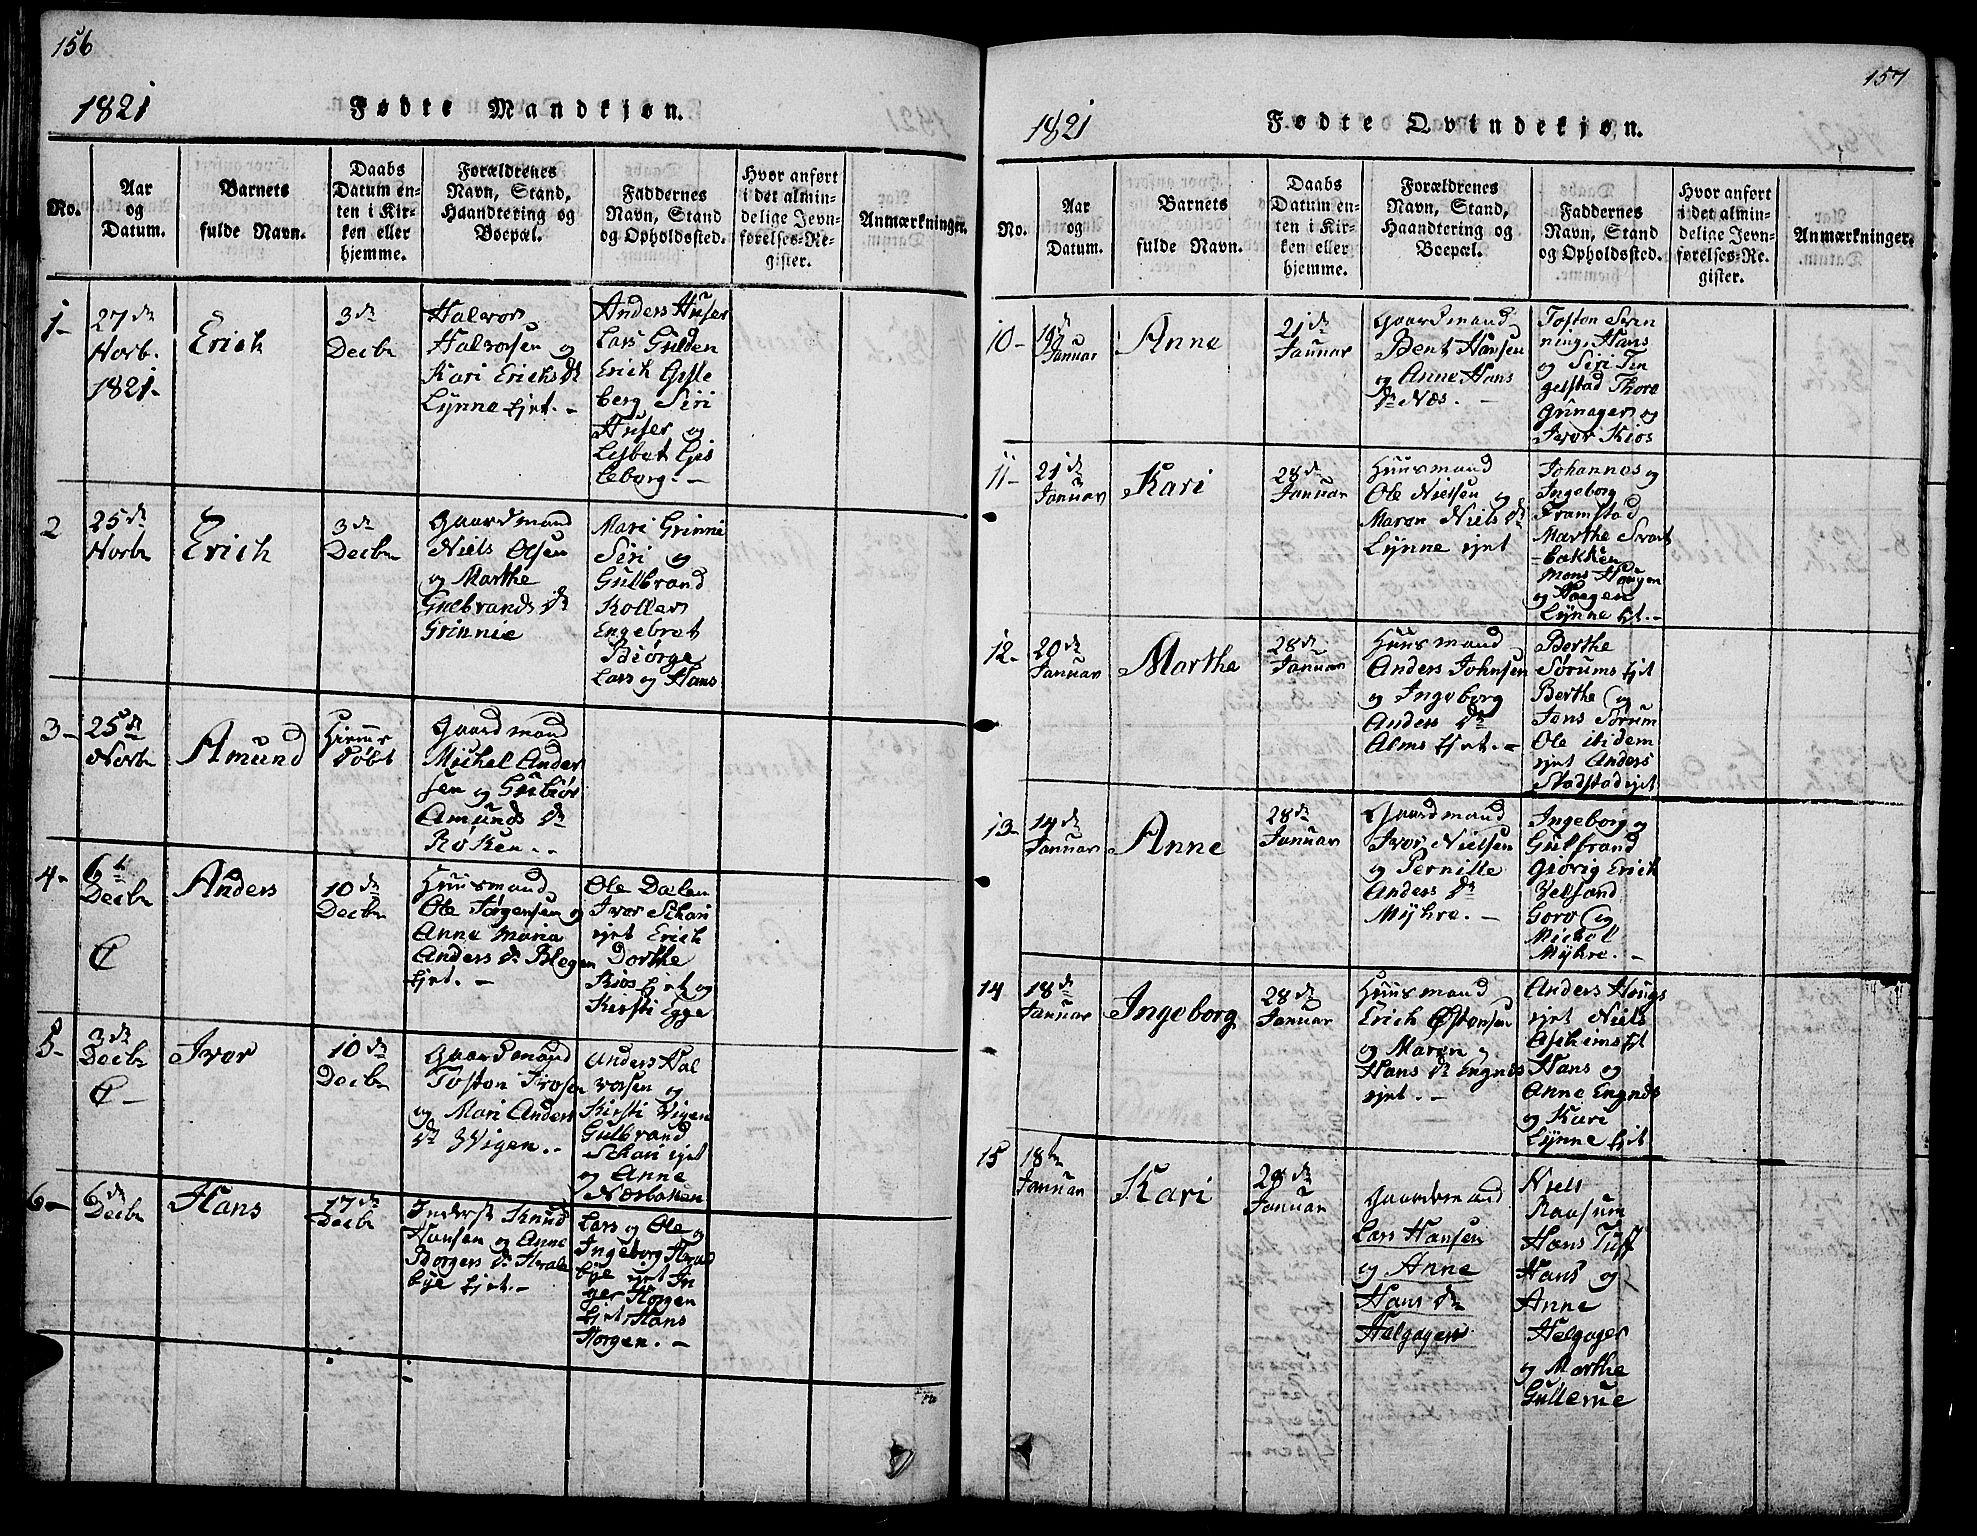 156
1821
Fødte Mandkjøn.
No.
Aar
og
Datum.
Barnets
fulde Navn.
Daabs
Datum en-
ten i Kir-
ken eller
hjemme.
Forældrenes
Navn, Stand,
Haandtering og
Boepæl.
Faddernes
Navn, Stand
og Opholdssted.
Hvor anført
i det almin-
delige Jevn-
førelses-Re-
gister.
Anmærkninger.
1-
27 de
Novb.
1821.
Erich
3 de
Decbr
Halvor
Halvorsen og
Kari Erichs Dr
Lynne Ejet. -
Anders Huser
Lars Gulden
Erich
berg Siri
Huser og
Lisbet
leborg. -
2
25 de
Novbr
Erich
3 de
Decbr
Gaardmand
Niels Olsen
og Marthe
Gulbrands Dr
Grinnie
Mari Grinni
Siri og
Gulbrand
Koller
Engebret
Biørge
Lars og Hans
3-
25 de
Novbr
Amund
Hiemme
Døbt
Gaardmand
Michel Ander
sen og Gubiør
Amunds Dr
Røken. .
4-
6 te
Decbr
C
Anders
10 de
Decbr
Huusmand
Ole Jørgensen og
Anne Maria
Anders Dr Blegen
Ejet. -
Ole Dalen
Ivor Schari
ejet Erich
Dorthe
Kios Ejet og
Kirsti Egge
5-
3 de
Decbr
C -
Ivor
10 de
Decbr
Gaardmand
Toston Ivorsen
og Mari Anders
Dr Wigen. .
Anders Hal
vorsen og
Kirsti Vigen
Gulbrand
Schari ejet
og Anne
Næsbakken
6-
6 de
Decbr
Hans
17 de
Decbr
Inderst Knud
Hansen og Anne
Borgers Dr Hvale
bye Ejet. -
Lars og Ole og
Ingeborg Hvale
bye ejet In
ger Horgen
Ejet Hans
Horgen. -
157
1821
Fødte Qvindekjøn.
No.
Aar
og
Datum.
Barnets
fulde Navn.
Daabs
Datum en-
ten i Kir-
ken eller
hjemme.
Forældrenes
Navn, Stand,
Haandtering og
Boepæl.
Faddernes
Navn, Stand
og Opholdssted.
Hvor anført
i det almin-
delige Jevn-
førelses-Re-
gister.
Anmærkninger.
10-
Januar
Anne
21 de
Januar
Gaardmand
Bent Hansen
og Anne Hans
Dr Næs. -
Toston Svin
ning, Hans
og Siri Tin
gelstad Thore
Grinager og
Ivor Kios
11-
21 de
Januar
Kari
28 de
Januar
Huusmand
Ole Nielsen og
Maren Niels Dr
Lynne ejet
Johannes og
Ingeborg
Framstad
Marthe Svart
-bakken
Mons Haugen
og Haagen
Lynne Ejt. -
12-
20 de
Januar
Marthe
28 de
Januar
Huusmand
Anders Johnsen
og Ingeborg
Anders Dr
Alms Ejet. -
Berthe
Sørums Ejet
Berthe og
Jons Sørum
Ole ibidem
ejet Anders
Stadstad ejet
13-
14 de
Januar
Anne
28 de
Januar
Gaardmand
Ivor Nielsen
og Pernille
Anders Dr
Myhre. -
Ingeborg og
Gulbrand
Giøvig Erich
Velsand
Goro og
Michel
Myhre. -
14
18 de
Januar
Ingeborg
28 de
Januar
Huusmand
Erich Østensen
og Maren
Hans Dr Engnes
ejet. -
Anders Hougs
ejet Niels
Aschims Ejt
Hans og
Anne Engnes
og Kari
Lynne Ejet
15
18 te
Januar
Kari
28 de
Januar
Gaardmand
Lars Hansen
og Anne
Hans Dr
Helgager
Niels
Raasum
Hans Tuff
Hans og
Anne
Helgager
og Marthe
Gullerue